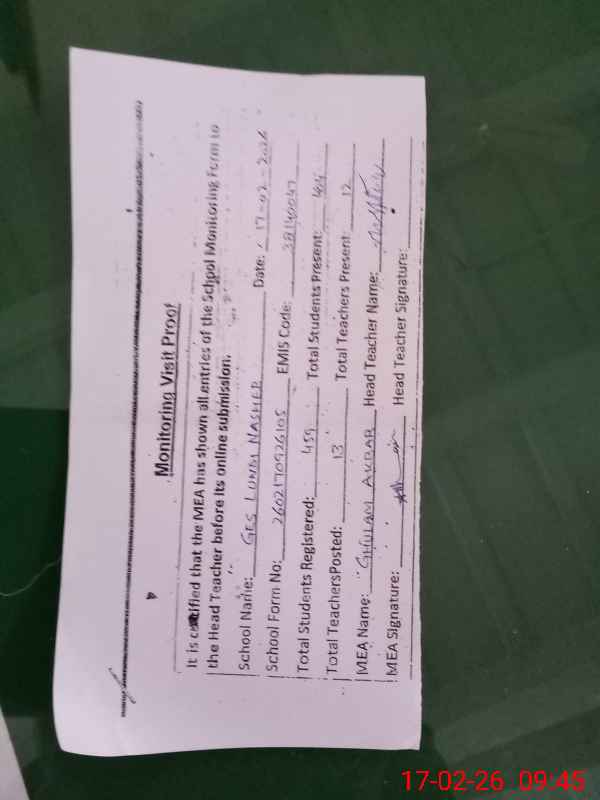 Monitoring Visit Proof
It is certified that the MEA has shown all entries of the School Monitoring Form to
the Head Teacher before its online submission.
School Name: GES LUNDI NASHER Date: 17-02-2026
School Form No: 2602170926105 EMIS Code: 38140047
Total Students Registered: 459 Total Students Present:
Total TeachersPosted: 13 Total Teachers Present: 12
MEA Name: GHULAM AKBAR Head Teacher Name:
MEA Signature: Head Teacher Signature:
17-02-26 09:45